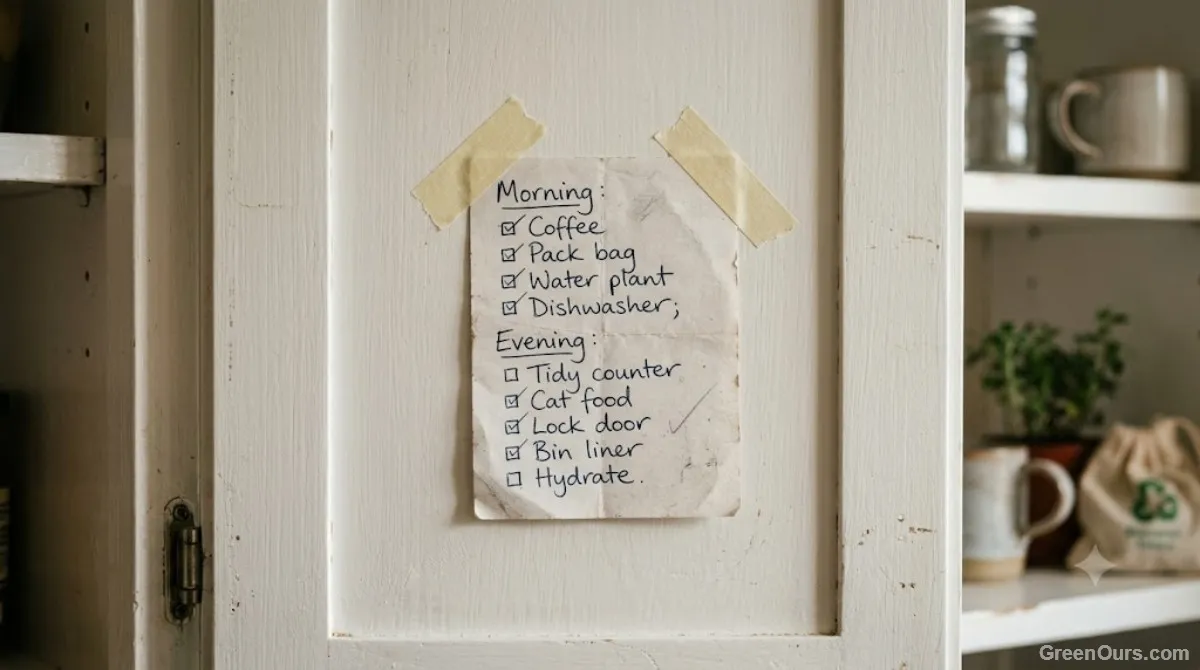 Morning:
☑ Coffee
☑ Pack bag
☑ Water plant
☑ Dishwasher;
Evening:
☐ Tidy counter
☑ Cat food
☑ Lock door
☑ Bin liner
☐ Hydrate.
GreenOurs.com